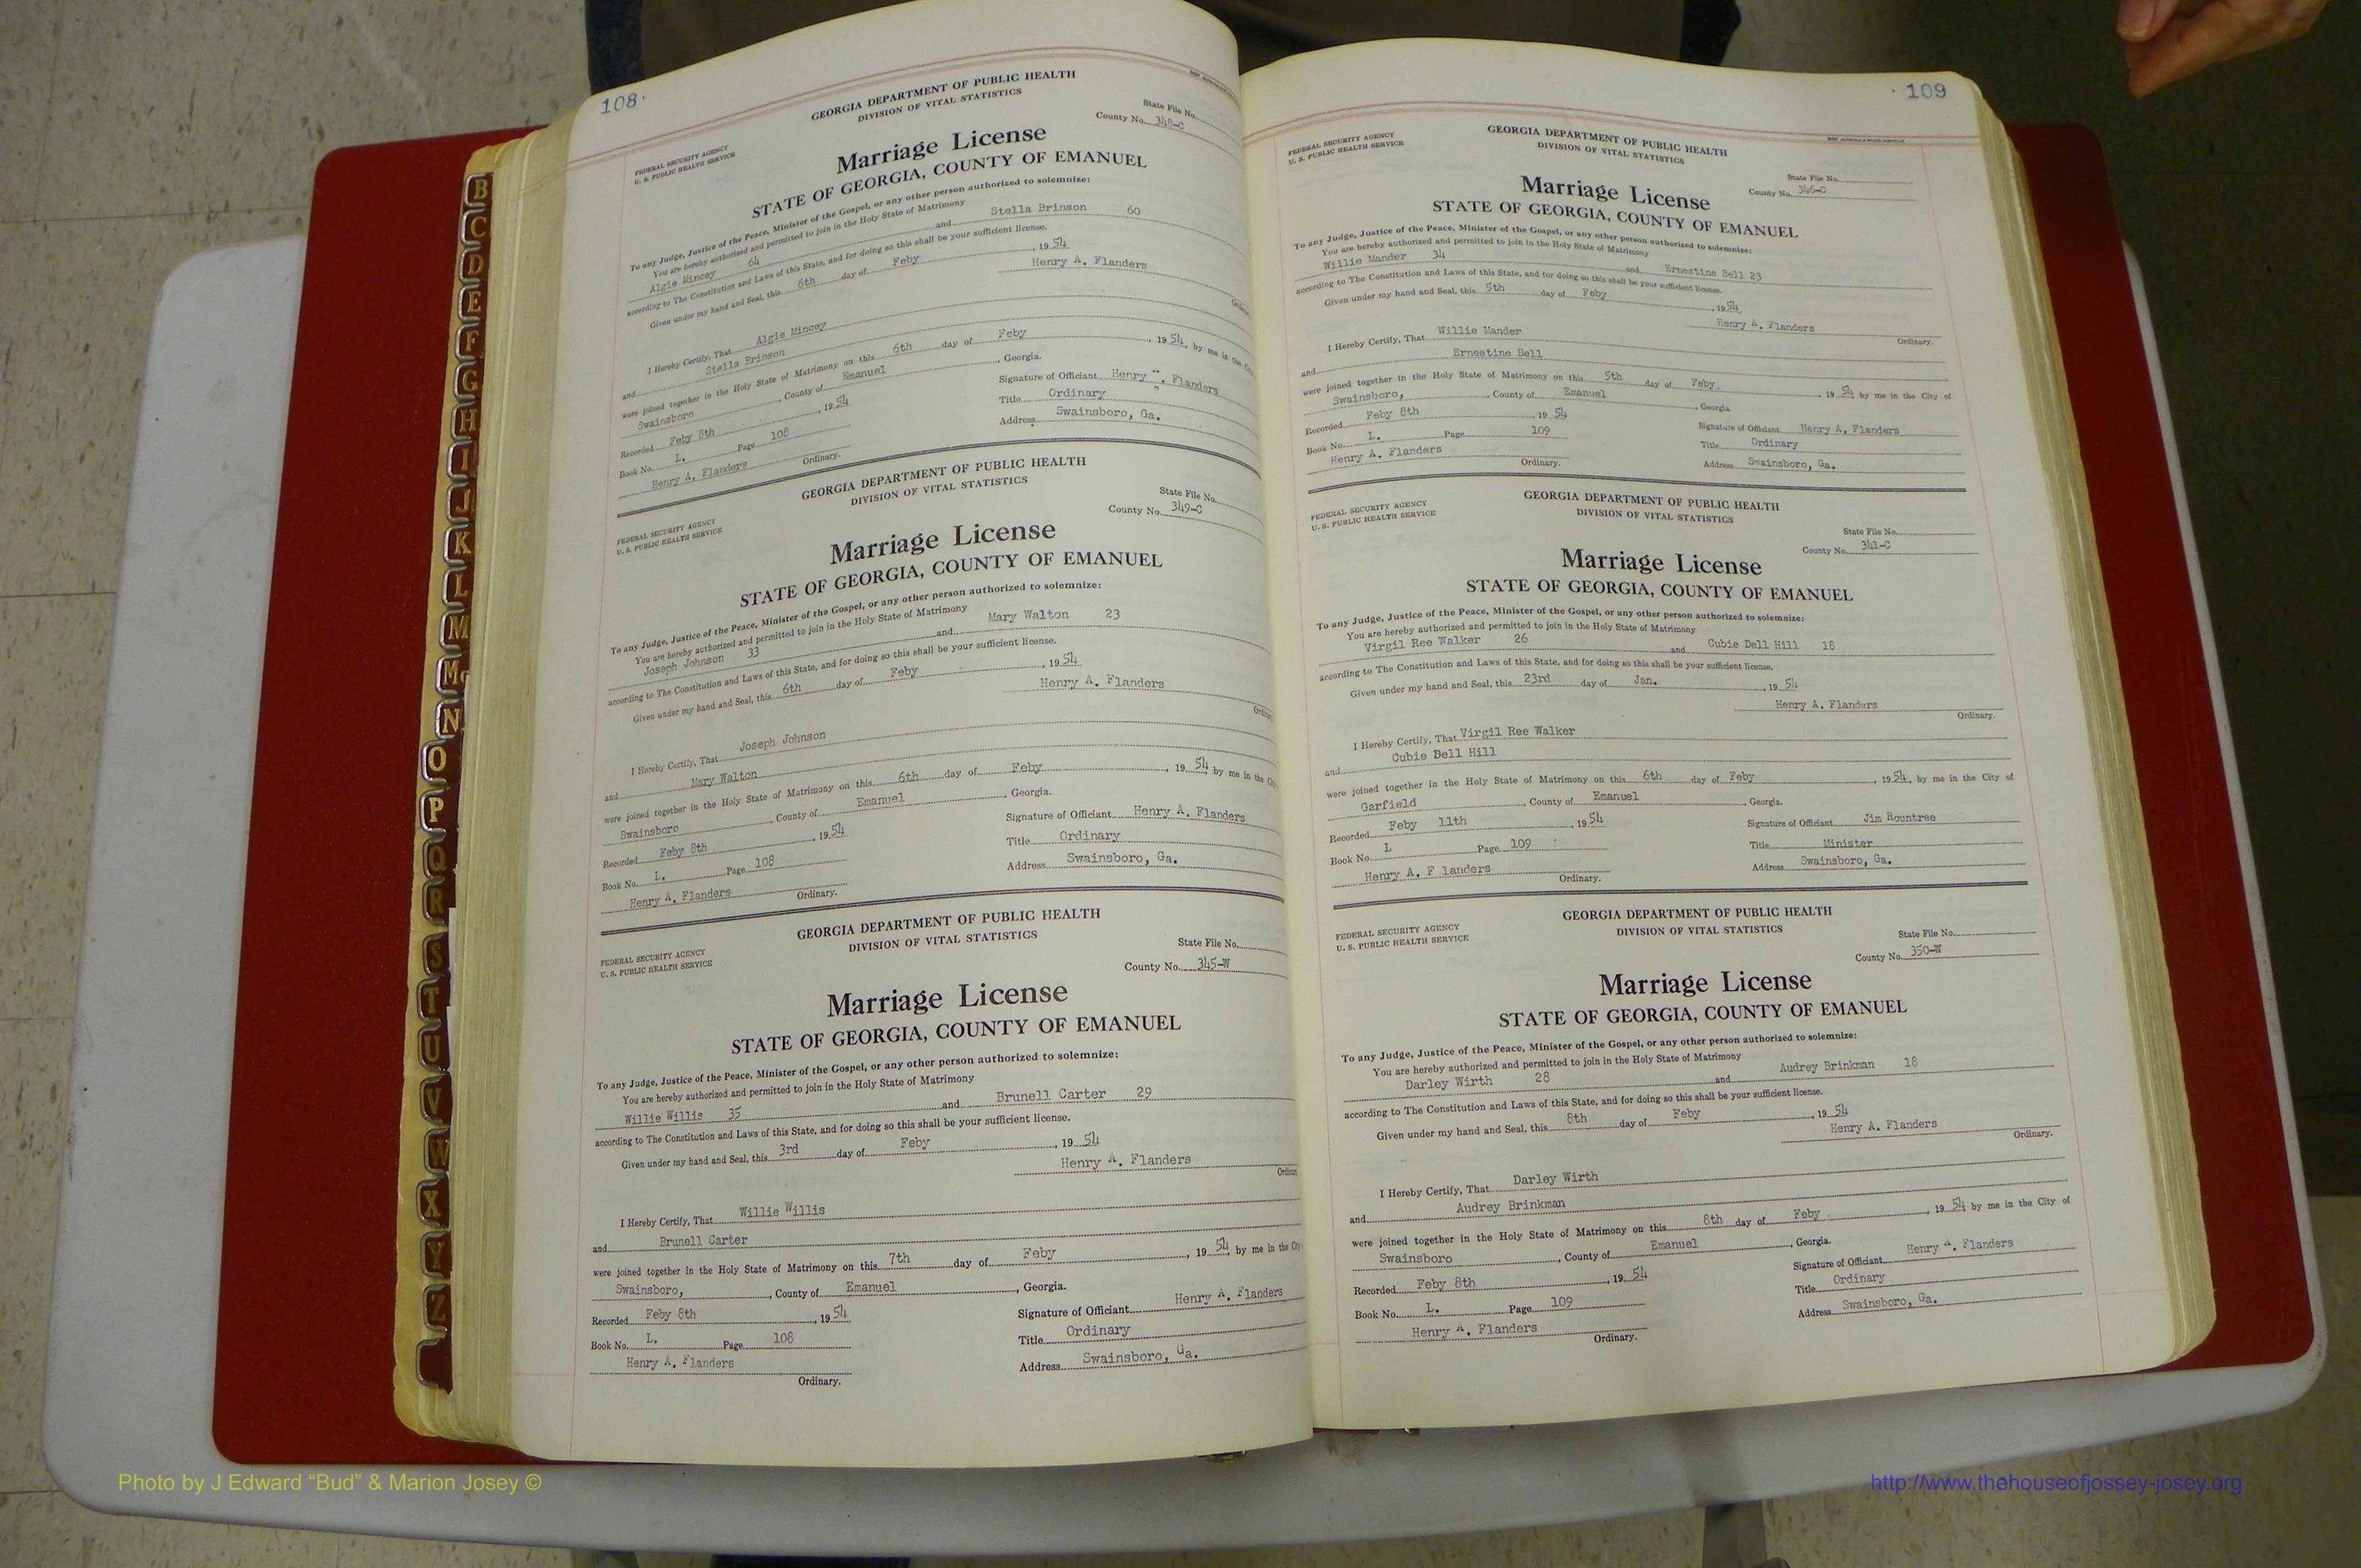 108
GEORGIA DEPARTMENT OF PUBLIC HEALTH
DIVISION OF VITAL STATISTICS
FEDERAL SECURITY AGENCY
U. S. PUBLIC HEALTH SERVICE
State File No.
County No. 348-C
Marriage License
STATE OF GEORGIA, COUNTY OF EMANUEL
To any Judge, Justice of the Peace, Minister of the Gospel, or any other person authorized to solemnize:
You are hereby authorized and permitted to join in the Holy State of Matrimony
Algie Mincey 64 and Stella Brinson 60
according to The Constitution and Laws of this State, and for doing so this shall be your sufficient license.
Given under my hand and Seal, this 6th day of Feby, 1954
Henry A. Flanders
I Hereby Certify, That Algie Mincey
and Stella Brinson
were joined together in the Holy State of Matrimony on this 6th day of Feby, 1954, by me in the
Swainsboro, County of Emanuel, Georgia.
Recorded Feby 8th, 1954
Signature of Officiant Henry A. Flanders
Book No. L. Page 108
Title Ordinary
Henry A. Flanders
Address Swainsboro, Ga.
Ordinary.
GEORGIA DEPARTMENT OF PUBLIC HEALTH
DIVISION OF VITAL STATISTICS
FEDERAL SECURITY AGENCY
U. S. PUBLIC HEALTH SERVICE
State File No.
County No. 349-C
Marriage License
STATE OF GEORGIA, COUNTY OF EMANUEL
To any Judge, Justice of the Peace, Minister of the Gospel, or any other person authorized to solemnize:
You are hereby authorized and permitted to join in the Holy State of Matrimony
Joseph Johnson 33 and Mary Walton 23
according to The Constitution and Laws of this State, and for doing so this shall be your sufficient license.
Given under my hand and Seal, this 6th day of Feby, 1954
Henry A. Flanders
I Hereby Certify, That Joseph Johnson
and Mary Walton
were joined together in the Holy State of Matrimony on this 6th day of Feby, 1954 by me in the
Swainsboro, County of Emanuel, Georgia.
Recorded Feby 8th, 1954
Signature of Officiant Henry A. Flanders
Book No. L. Page 108
Title Ordinary
Henry A. Flanders
Address Swainsboro, Ga.
Ordinary.
GEORGIA DEPARTMENT OF PUBLIC HEALTH
DIVISION OF VITAL STATISTICS
FEDERAL SECURITY AGENCY
U. S. PUBLIC HEALTH SERVICE
State File No.
County No. 345-W
Marriage License
STATE OF GEORGIA, COUNTY OF EMANUEL
To any Judge, Justice of the Peace, Minister of the Gospel, or any other person authorized to solemnize:
You are hereby authorized and permitted to join in the Holy State of Matrimony
Willie Willis 35 and Brunell Carter 29
according to The Constitution and Laws of this State, and for doing so this shall be your sufficient license.
Given under my hand and Seal, this 3rd day of Feby, 1954
Henry A. Flanders
I Hereby Certify, That Willie Willis
and Brunell Carter
were joined together in the Holy State of Matrimony on this 7th day of Feby, 1954 by me in the
Swainsboro, County of Emanuel, Georgia.
Recorded Feby 8th, 1954
Signature of Officiant Henry A. Flanders
Book No. L. Page 108
Title Ordinary
Henry A. Flanders
Address Swainsboro, Ga.
Ordinary.
109
GEORGIA DEPARTMENT OF PUBLIC HEALTH
DIVISION OF VITAL STATISTICS
FEDERAL SECURITY AGENCY
U. S. PUBLIC HEALTH SERVICE
State File No.
County No. 346-C
Marriage License
STATE OF GEORGIA, COUNTY OF EMANUEL
To any Judge, Justice of the Peace, Minister of the Gospel, or any other person authorized to solemnize:
You are hereby authorized and permitted to join in the Holy State of Matrimony
Willie Mander 34 and Ernestine Bell 23
according to The Constitution and Laws of this State, and for doing so this shall be your sufficient license.
Given under my hand and Seal, this 5th day of Feby, 1954
Henry A. Flanders
Ordinary.
I Hereby Certify, That Willie Mander
and Ernestine Bell
were joined together in the Holy State of Matrimony on this 5th day of Feby, 1954, by me in the City of
Swainsboro, County of Emanuel, Georgia.
Recorded Feby 8th, 1954
Signature of Officiant Henry A. Flanders
Book No. L. Page 109
Title Ordinary
Henry A. Flanders
Address Swainsboro, Ga.
Ordinary.
GEORGIA DEPARTMENT OF PUBLIC HEALTH
DIVISION OF VITAL STATISTICS
FEDERAL SECURITY AGENCY
U. S. PUBLIC HEALTH SERVICE
State File No.
County No. 341-C
Marriage License
STATE OF GEORGIA, COUNTY OF EMANUEL
To any Judge, Justice of the Peace, Minister of the Gospel, or any other person authorized to solemnize:
You are hereby authorized and permitted to join in the Holy State of Matrimony
Virgil Ree Walker 26 and Cubie Dell Hill 18
according to The Constitution and Laws of this State, and for doing so this shall be your sufficient license.
Given under my hand and Seal, this 23rd day of Jan., 1954
Henry A. Flanders
Ordinary.
I Hereby Certify, That Virgil Ree Walker
and Cubie Dell Hill
were joined together in the Holy State of Matrimony on this 6th day of Feby, 1954, by me in the City of
Garfield, County of Emanuel, Georgia.
Recorded Feby 11th, 1954
Signature of Officiant Jim Rountree
Book No. L Page 109
Title Minister
Henry A. F landers
Address Swainsboro, Ga.
Ordinary.
GEORGIA DEPARTMENT OF PUBLIC HEALTH
DIVISION OF VITAL STATISTICS
FEDERAL SECURITY AGENCY
U. S. PUBLIC HEALTH SERVICE
State File No.
County No. 350-W
Marriage License
STATE OF GEORGIA, COUNTY OF EMANUEL
To any Judge, Justice of the Peace, Minister of the Gospel, or any other person authorized to solemnize:
You are hereby authorized and permitted to join in the Holy State of Matrimony
Darley Wirth 28 and Audrey Brinkman 18
according to The Constitution and Laws of this State, and for doing so this shall be your sufficient license.
Given under my hand and Seal, this 8th day of Feby, 1954
Henry A. Flanders
Ordinary.
I Hereby Certify, That Darley Wirth
and Audrey Brinkman
were joined together in the Holy State of Matrimony on this 8th day of Feby, 1954 by me in the City of
Swainsboro, County of Emanuel, Georgia.
Recorded Feby 8th, 1954
Signature of Officiant Henry A. Flanders
Book No. L. Page 109
Title Ordinary
Henry A. Flanders
Address Swainsboro, Ga.
Ordinary.
B
C
D
E
F
G
H
I
J
K
L
M
Mc
N
O
P
Q
R
S
T
U
V
W
X
Y
Z
Photo by J Edward “Bud” & Marion Josey ©
http://www.thehouseofjossey-josey.org